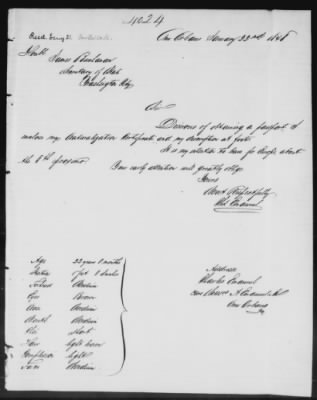 4024
New Orleans January 22nd 1848
Honble
James Buchanan
Secretary of State
Washington City
Sir
Desirous of obtaining a passport I
enclose my Naturalization Certificate and my description at foot.
It is my intention to leave for Europe about
the 8th proximo
Your early attention will greatly oblige
Yours
Most Respectfully
Age 33 years 8 months
Stature 5 feet 8 inches
Forehead Medium
Eyes Brown
Nose Medium
Mouth Medium
Chin Short
Hair light brown
Complexion light
Face Medium
Address
Charles
New Orleans